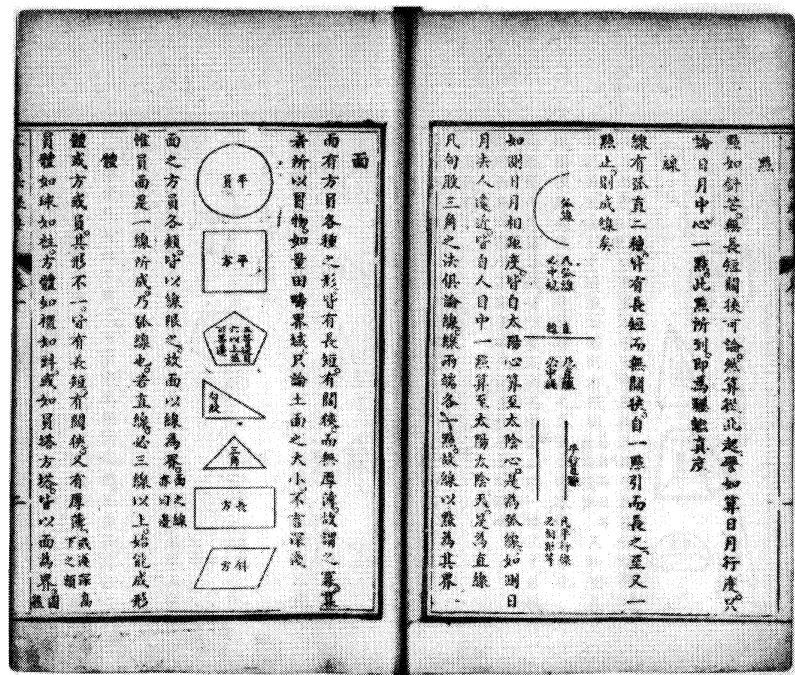 點
點如針芒無長短闊狹可論然算從此起譬如算日月行度只
論日月中心一點此點所到即為躔離真度
線
線有弧直二種皆有長短而無闊狹自一點引而長之至又一
點止則成線矣
弧線
凡弧線
必中規
直線
凡直線
必中繩
平行直線
凡平行線
必相對等
如測日月相距度皆自太陽心算至太陰心是為弧線如測日
月去人遠近皆自人目中一點算至太陽太陰天是為直線
凡句股三角之法俱論線線兩端各一點故線以點為其界
面
面有方員各種之形皆有長短有闊狹而無厚薄故謂之冪冪
者所以冒物如量田疇界域只論土面之大小不言深淺
平員
平方
五等邊
六以上並
句股
三角
長方
斜方
面之方員各類皆以線限之故面以線為界面之線
亦曰邊
惟員面是一線所成乃弧線也若直線必三線以上始能成形
體
體或方或員其形不一皆有長短有闊狹又有厚薄或淺深高
下之類
員體如球如柱方體如櫃如斗或如員塔方塔皆以面為界